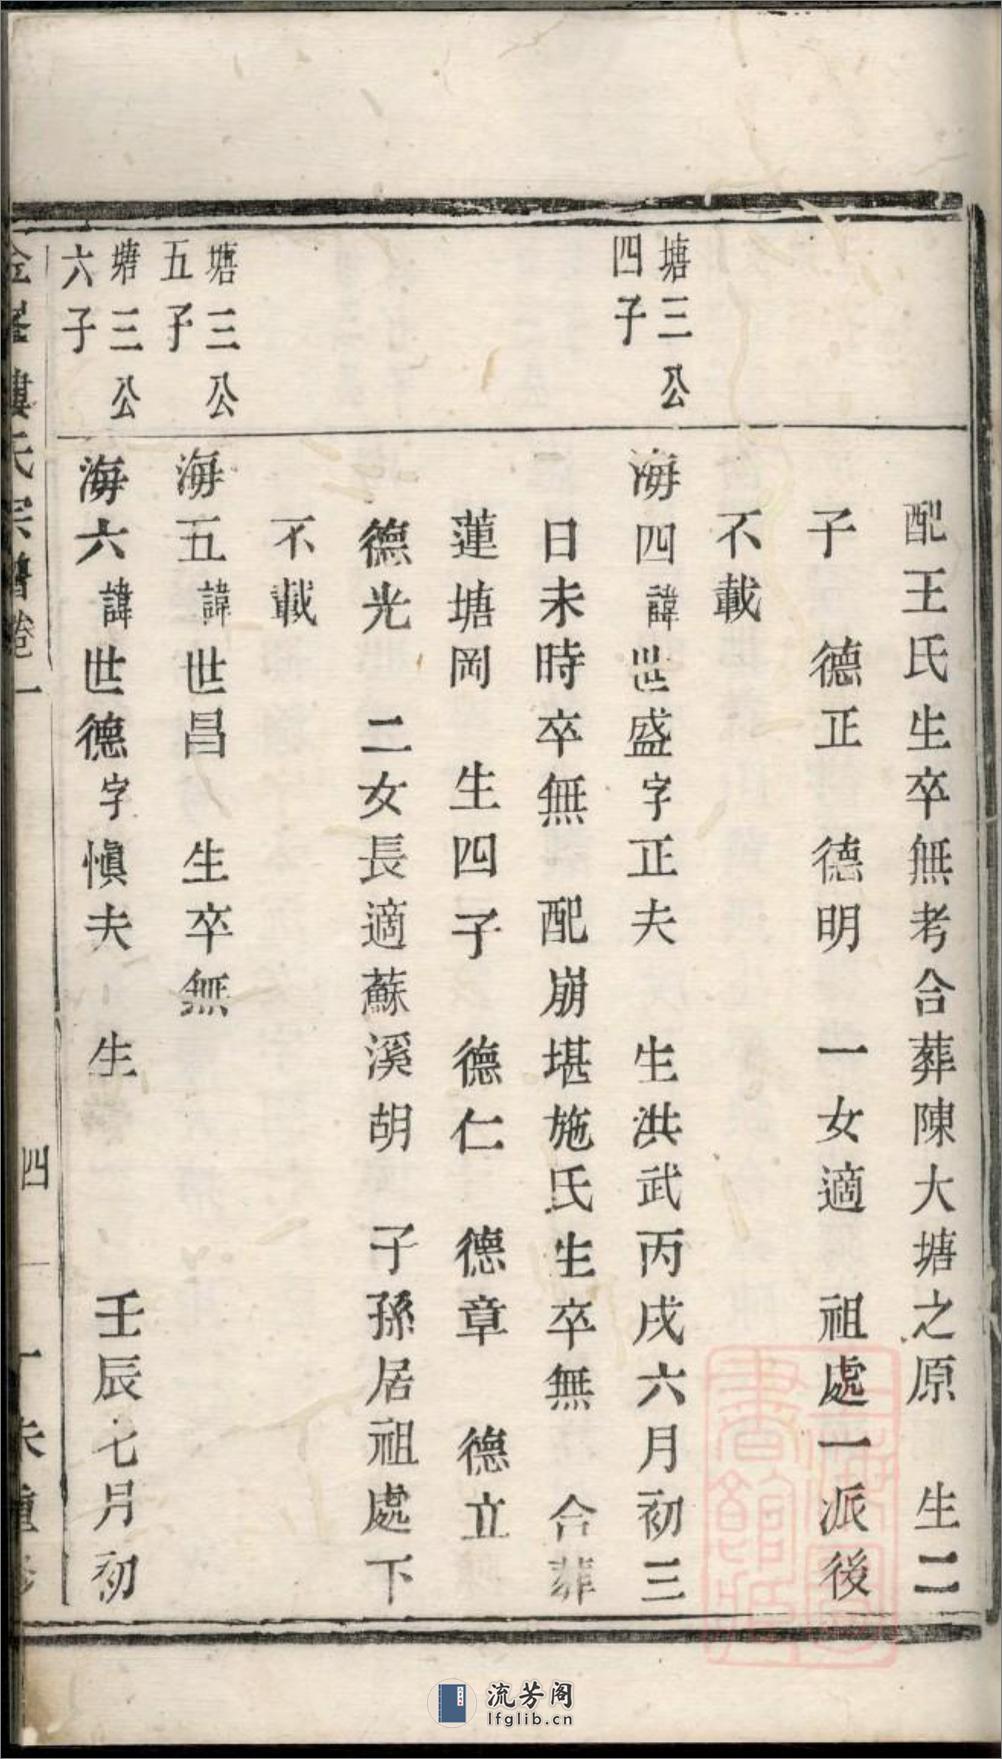 配王氏生卒無考合葬陳大塘之原 生二
子 德正 德明 一女適 祖處一派後
不載
塘三公
四子
海四諱世盛字正夫 生洪武丙戌六月初三
日未時卒無 配崩堪施氏生卒無 合葬
蓮塘岡 生四子 德仁 德章 德立
德光 二女長適蘇溪胡 子孫居祖處下
不載
塘三公
五子
海五諱世昌 生卒無
塘三公
六子
海六諱世德字愼夫 生 壬辰七月初
氏宗譜卷一
四
流芳阁
lfglib.cn